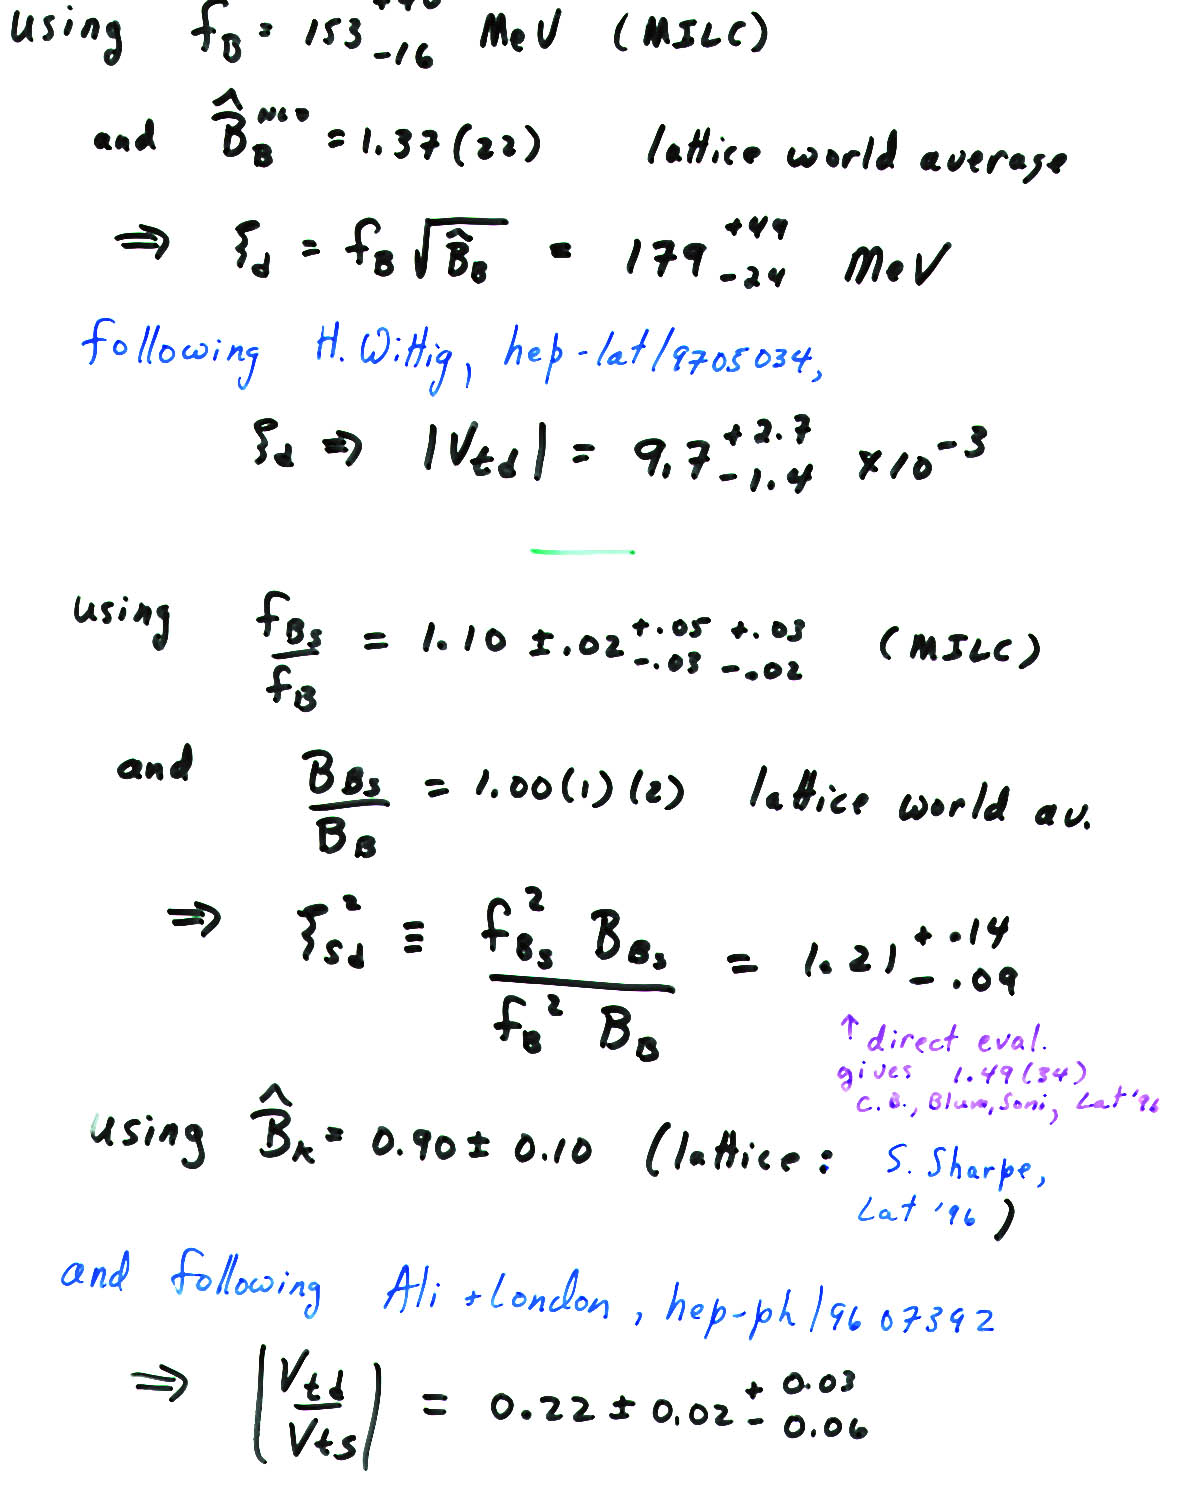 using f_B = 153 +40 -16 MeV (MILC)
and B̂_B^NLO = 1.37(22) lattice world average
⇒ ξ_d = f_B √B̂_B = 179 +49 -24 MeV
following H. Wittig, hep-lat/9705034,
ξ_d ⇒ |V_td| = 9.7 +2.7 -1.4 ×10^-3
using f_Bs / f_B = 1.10 ± .02 +.05 -.03 +.03 -.02 (MILC)
and B_Bs / B_B = 1.00(1)(2) lattice world av.
⇒ ξ_sd^2 ≡ f_Bs^2 B_Bs / f_B^2 B_B = 1.21 +.14 -.09
↑ direct eval.
gives 1.49(34)
C.B., Blum, Soni, Lat '96
using B̂_K = 0.90 ± 0.10 (lattice: S. Sharpe,
Lat '96)
and following Ali + London, hep-ph/9607392
⇒ |V_td / V_ts| = 0.22 ± 0.02 +0.03 -0.06